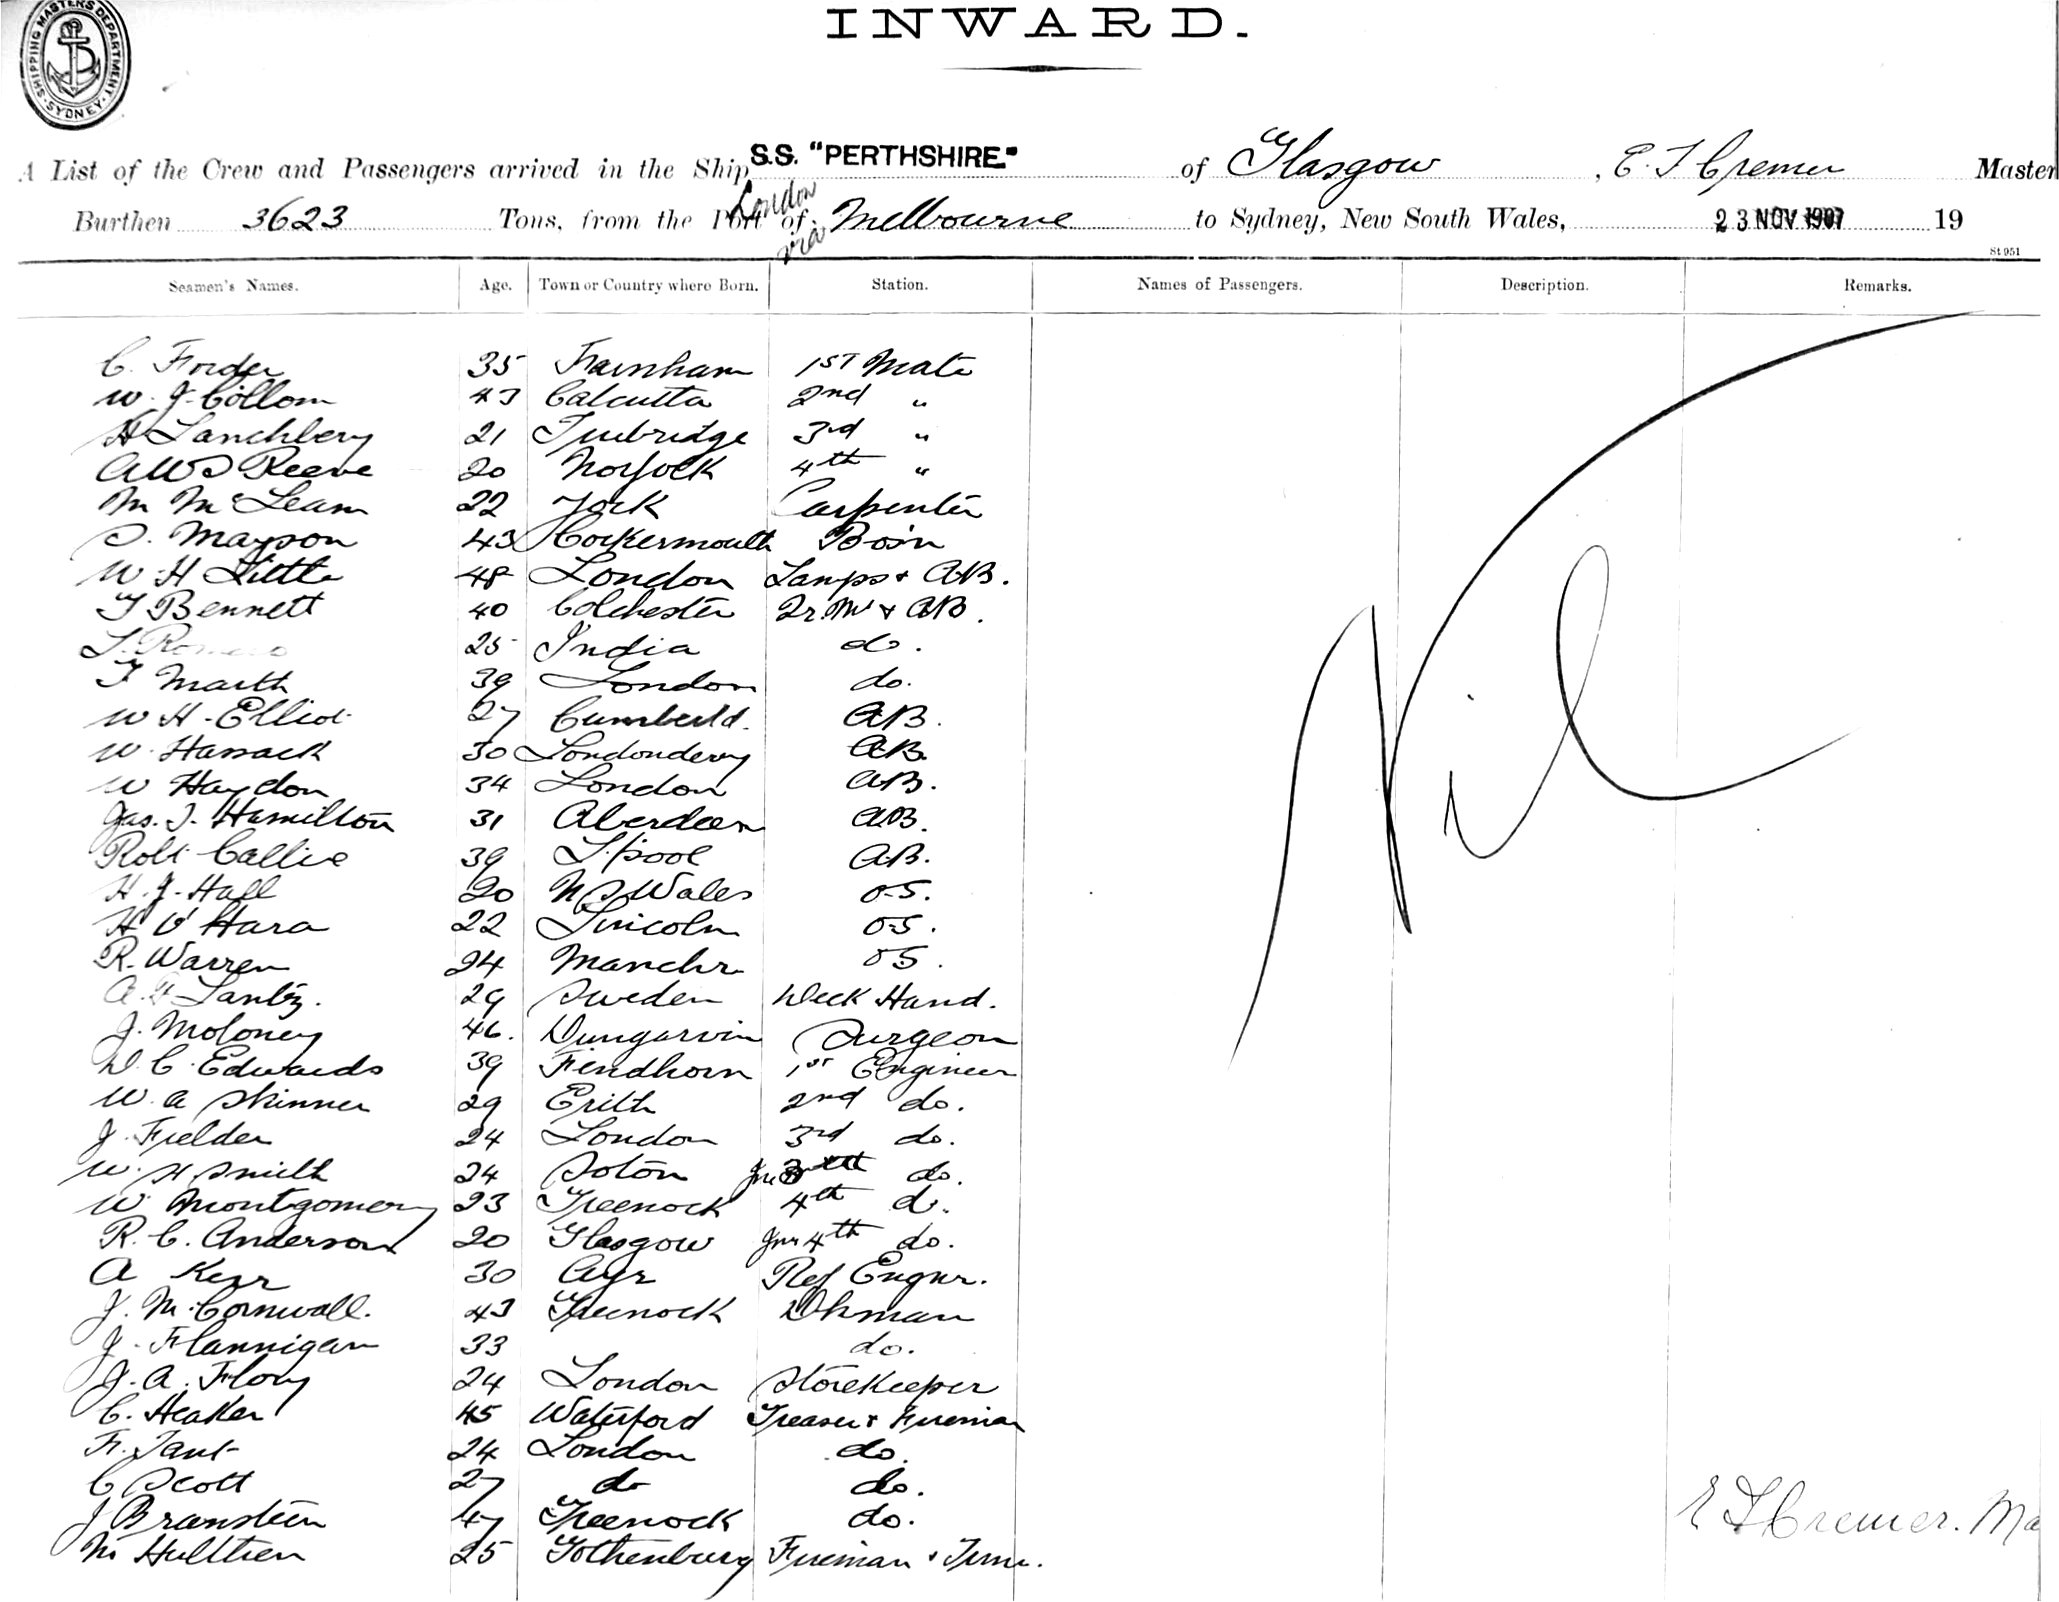 SHIPPING MASTERS DEPARTMENT. SYDNEY.
INWARD.
A List of the Crew and Passengers arrived in the Ship S.S. "PERTHSHIRE." of Glasgow, E. T Cremer Master
Burthen 3623 Tons, from the Port of London via Melbourne to Sydney, New South Wales, 23 NOV 1907 19
St 951
Seamen's Names. Age. Town or Country where Born. Station. Names of Passengers. Description. Remarks.
C. Forder 35 Farnham 1ST Mate
W. J. Collom 43 Calcutta 2nd "
H Lanchbery 21 Tunbridge 3rd "
A W S Reeve 20 Norfolk 4th "
M McLean 22 York Carpenter
S. Mayson 43 Cockermouth Bosn
W. H Little 48 London Lamps & AB.
T Bennett 40 Colchester Qr. Mr & AB.
25 India do.
T Marth 39 London do.
W H. Elliot 27 Cumberld. AB.
W. Hassack 30 Londonderry AB.
W Haydon 34 London AB.
Jas. T. Hamilton 31 Aberdeen AB.
Robt Callie 39 L'pool AB.
H. J. Hall 20 N S Wales O.S.
H O'Hara 22 Lincoln O.S.
R. Warren 24 Manchr OS.
A. Lantz. 29 Sweden Deck Hand.
J. Moloney 46. Dungarvin Surgeon
D. C. Edwards 39 Findhorn 1st Engineer
W. A Skinner 29 Erith 2nd do.
J. Fielder 24 London 3rd do.
W. H Smith 24 Soton Jnr do.
W. Montgomery 23 Greenock 4th do.
R. C. Anderson 20 Glasgow Jnr 4th do.
A Kerr 30 Ayr Ref Engnr.
J. M. Cornwall. 43 Greenock Dkman
J. Flannigan 33 do.
J. A. Flory 24 London Storekeeper
C. Heaker 45 Waterford Greaser & Fireman
F. Tant 24 London do.
C Scott 27 do do.
J Branstein 47 Greenock do.
M Hulthen 25 Gothenburg Fireman & Trmr.
Nil
E T Cremer. Ma